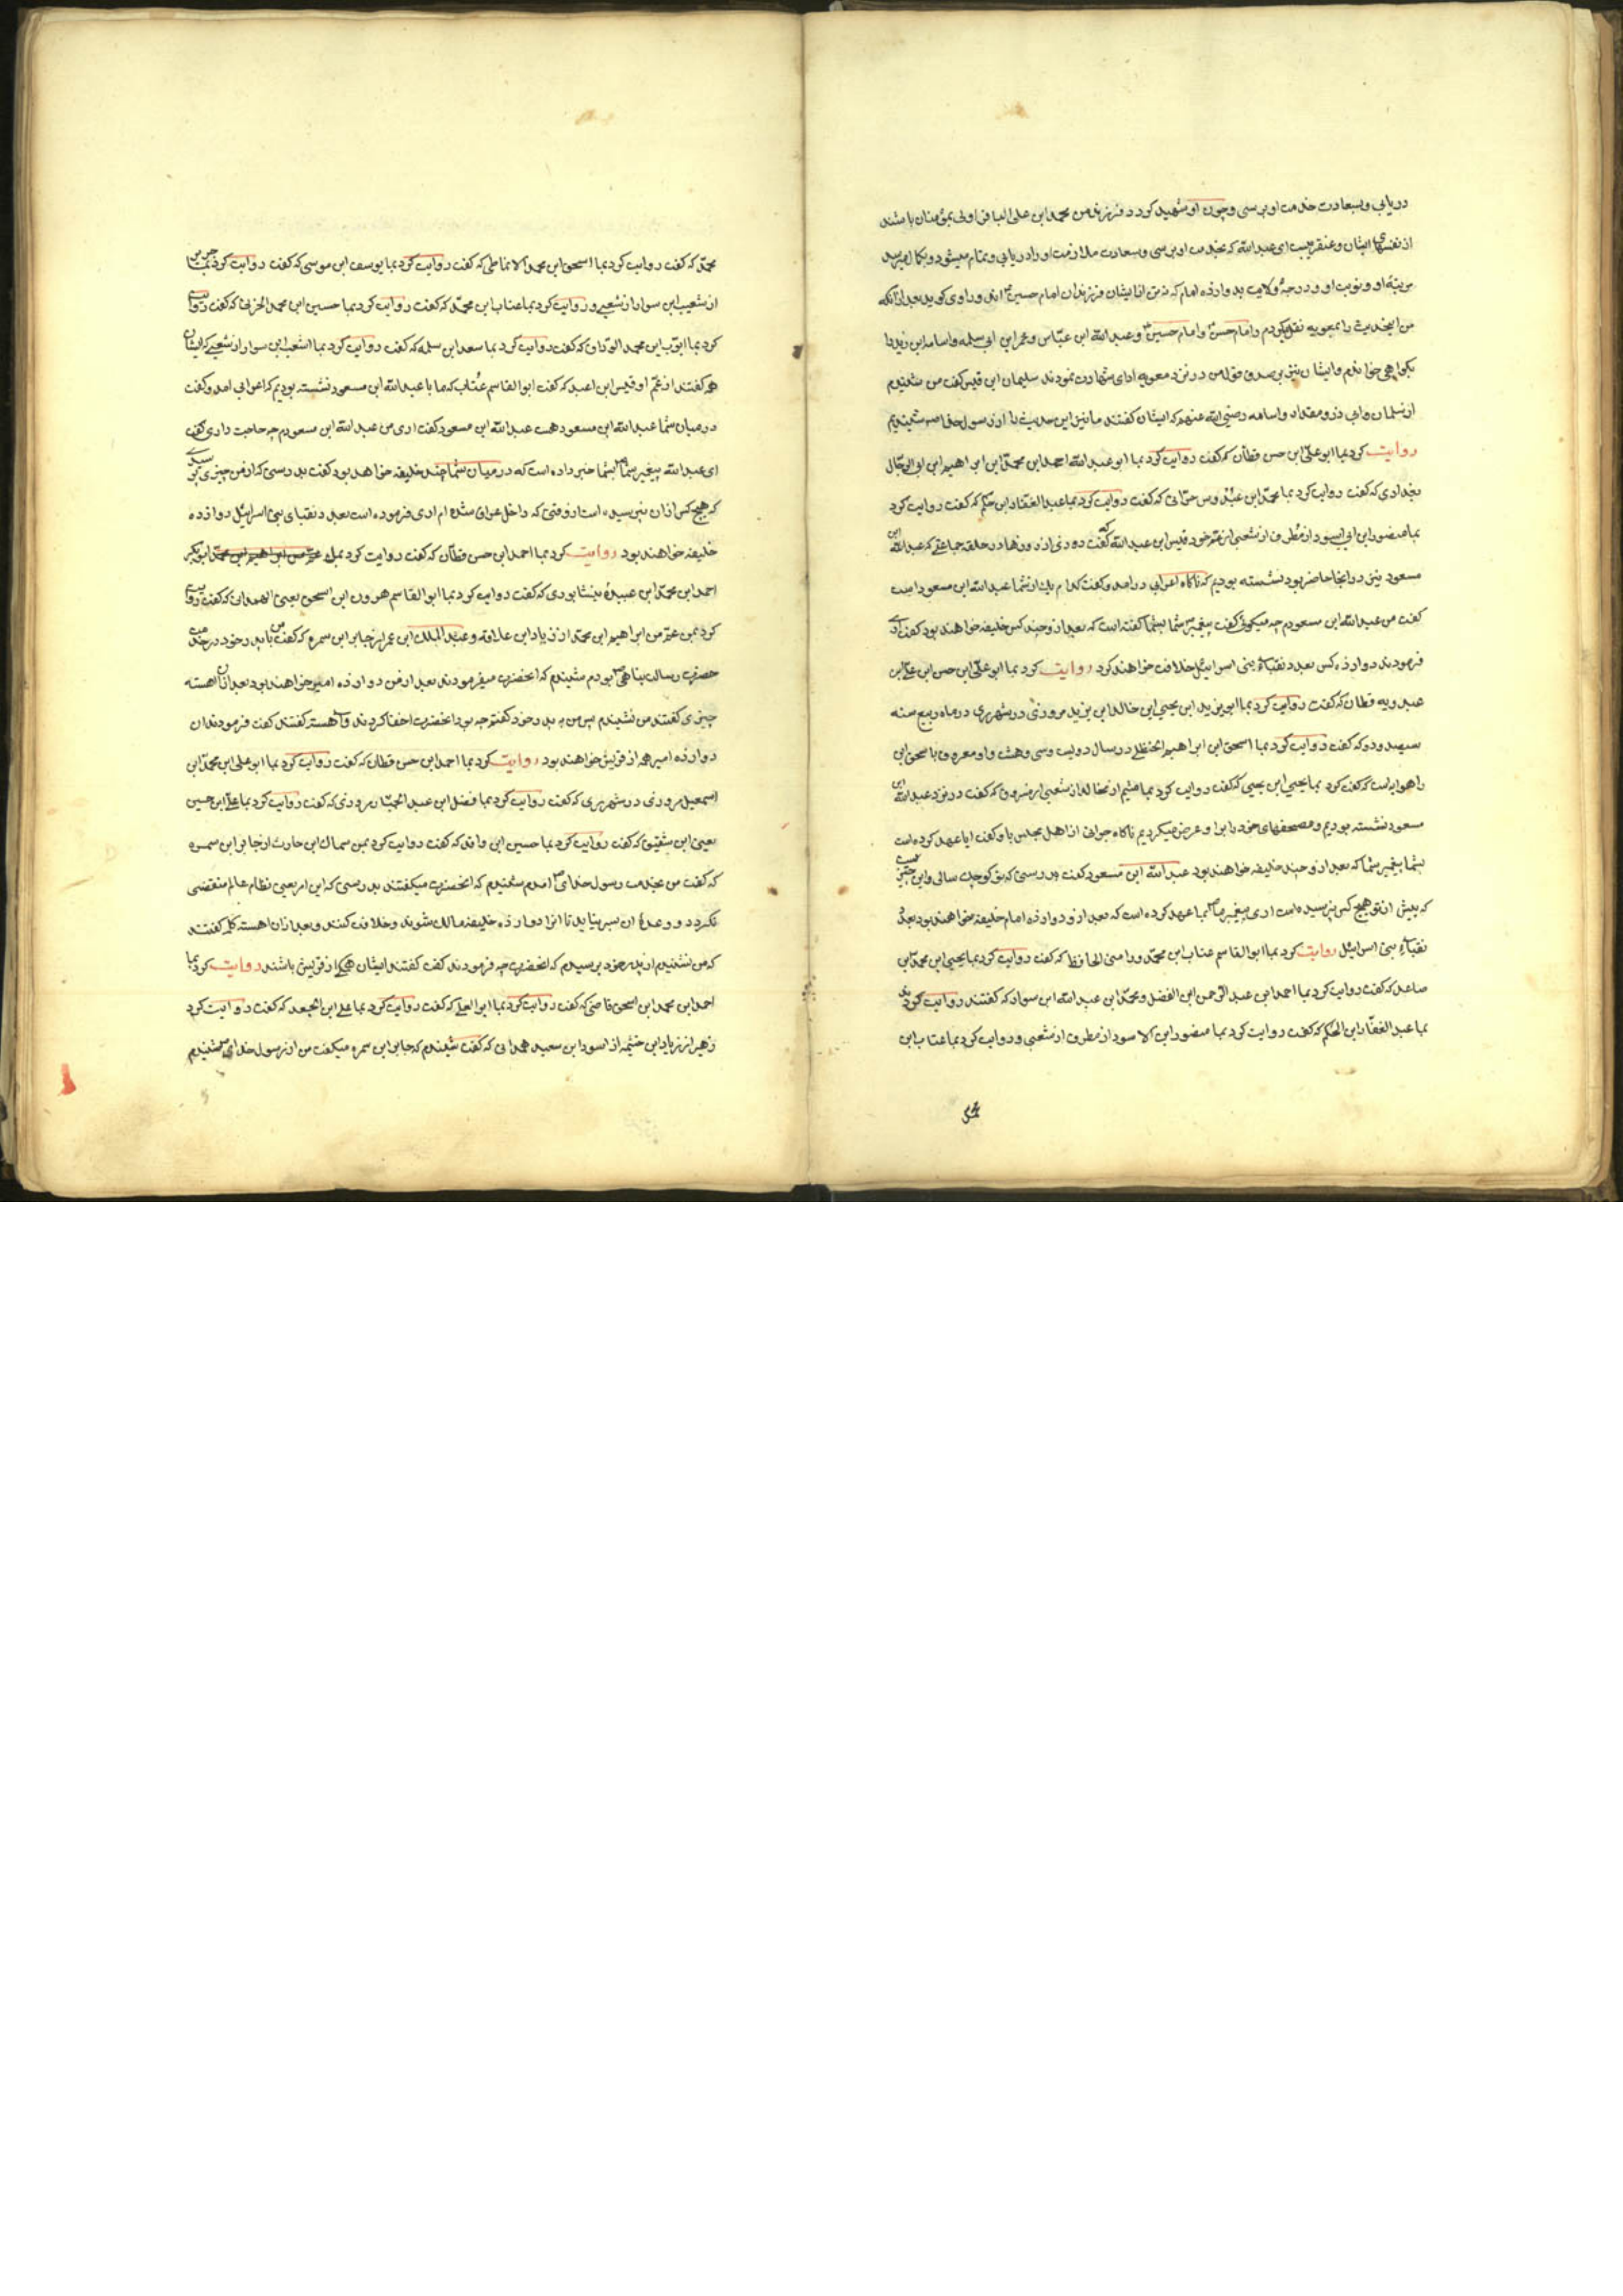 دریابی و بسعادت خدمت او برسی و چون او شهید کردد فرزند من محمد ابن علی الباقر اولی بمؤمنان باشند
از نفسهای ایشان و عنقریب ای عبد الله که بخدمت او برسی و بسعادت ملازمت او را دریابی و تمام میشود و بکمال میرسد
مرتبهٔ او و نوبت او و درجهٔ ولایت بدوازده امام که نه تن از ایشان فرزندان امام حسین اند و راوی کوید بعد از آنکه
من اینحدیث را بمعویه نقل کردم و امام حسن و امام حسین و عبد الله ابن عباس و عمر ابن ابی سلمه و اسامه ابن زید را
بکواهی خواندم و ایشان نیز بر صدق قول من در نزد معویه ادای شهادت نمودند سلیمان ابن قیس کفت من شنیدم
از سلمان و ابی ذر و مقداد و اسامه رضی الله عنهم که ایشان کفتند ما نیز این حدیث را از رسول خدا شنیدیم
روایت کرد بما ابو علی ابن حسن قطان که کفت روایت کرد بما ابو عبد الله احمد ابن محمد ابن ابراهیم ابن ابی الرجال
بغدادی که کفت روایت کرد بما محمد ابن عبدوس حرانی که کفت روایت کرد بما عبد الغفار ابن حکم که کفت روایت کرد
بما منصور ابن ابی اسود از مطرف از شعبی از عم خود قیس ابن عبد الله که کفت روزی از روزها در حلقه جماعتی که عبد الله ابن
مسعود نیز در انجا حاضر بود نشسته بودیم که ناکاه اعرابی درامد و کفت کدام یک از شما عبد الله ابن مسعود است
کفت من عبد الله ابن مسعودم چه میکوئی کفت پیغمبر شما بشما کفته است که بعد از و چند کس خلیفه خواهند بود کفت اری
فرمودند دوازده کس بعدد نقباء بنی اسرائیل خلافت خواهند کرد روایت کرد بما ابو علی ابن حسن ابن علی ابن
عبدویه قطان که کفت روایت کرد بما ابو یزید ابن یحیی ابن خالد ابن یزید مروزی در شهر ری در ماه ربیع سنه
سیصد و دو که کفت روایت کرد بما اسحق ابن ابراهیم الحنظلی در سال دویست و سی و هشت و او معروف باسحق ابن
راهویه است که کفت کرد بما یحیی ابن یحیی که کفت روایت کرد بما هشیم از مخالد از شعبی از مسروق که کفت در نزد عبد الله ابن
مسعود نشسته بودیم و مصحفهای خود را برا و عرض میکردیم ناکاه جوانی از اهل مجلس باو کفت ایا عهد کرده است
بشما پیغمبر شما که بعد از و چند خلیفه خواهند بود عبد الله ابن مسعود کفت بدرستی که تو کوچک سالی و این چیزیست
که پیش از تو هیچ کس نپرسیده است اری پیغمبر ما بما عهد کرده است که بعد از و دوازده امام خلیفه خواهند بود بعدد
نقباء بنی اسرائیل روایت کرد بما ابو القاسم عتاب ابن محمد ورامینی الحافظ که کفت روایت کرد بما یحیی ابن محمد ابن
صاعد که کفت روایت کرد بما احمد ابن عبد الرحمن ابن الفضل و محمد ابن عبد الله ابن سوار که کفتند روایت کرد
بما عبد الغفار ابن الحکم که کفت روایت کرد بما منصور ابن الاسود از مطرف از شعبی و روایت کرد بما عتاب ابن
محمد
محمد که کفت روایت کرد بما اسحق ابن محمد الانماطی که کفت روایت کرد بما یوسف ابن موسی که کفت روایت کرد بما
از شعیب ابن سوار از شعبی و روایت کرد بما عتاب ابن محمد که کفت روایت کرد بما حسین ابن محمد الحرانی که کفت روایت
کرد بما ایوب ابن محمد الوزان که کفت روایت کرد بما سعد ابن سلمه که کفت روایت کرد بما اشعب ابن سوار از شعبی که ایشان
همه کفتند از عم او قیس ابن اعبد که کفت ابو القاسم عتاب که ما با عبد الله ابن مسعود نشسته بودیم که اعرابی امد و کفت
در میان شما عبد الله ابن مسعود هست عبد الله ابن مسعود کفت اری من عبد الله ابن مسعودم چه حاجت داری کفت
ای عبد الله پیغمبر شما بشما خبر داده است که در میان شما چند خلیفه خواهد بود کفت بدرستی که از من چیزی پرسیدی
که هیچ کس ازان نپرسیده است از وقتی که داخل عراق شده ام اری فرموده است بعدد نقبای بنی اسرائیل دوازده
خلیفه خواهند بود روایت کرد بما احمد ابن حسن قطان که کفت روایت کرد بمن ابو بکر
احمد ابن محمد ابن عبیدهٔ نیشابوری که کفت روایت کرد بما ابو القاسم هرون ابن اسحق یعنی الهمدانی که کفت روایت
کرد بمن عم من ابراهیم ابن محمد از زیاد ابن علاقه و عبد الملک ابن عمر از جابر ابن سمره که کفت من با پدر خود در خدمت
حضرت رسالت پناهی بودم شنیدم که انحضرت میفرمودند بعد از من دوازده امیر خواهند بود بعد ازان اهسته
چیزی کفتند من نشنیدم پس من به پدر خود کفتم چه بود انحضرت اخفا کردند و اهسته کفتند کفت فرمودند ان
دوازده امیر همه از قریش خواهند بود روایت کرد بما احمد ابن حسن قطان که کفت روایت کرد بما ابو علی ابن محمد ابن
اسمعیل مروزی در شهر ری که کفت روایت کرد بما فضل ابن عبد الجبار مروزی که کفت روایت کرد بما علی ابن حسین
یعنی ابن شقیق که کفت روایت کرد بما حسین ابن واقد که کفت روایت کرد بمن سماک ابن حارث از جابر ابن سمره
که کفت من بخدمت رسول خدای امدم شنیدم که انحضرت میکفتند بدرستی که این امر یعنی نظام عالم منقضی
نکردد و وعدهٔ ان سر نیاید تا انرا دوازده خلیفه مالک شوند و خلافت کنند و بعد ازان اهسته کلمه کفتند
که من نشنیدم از پدر خود پرسیدم که انحضرت چه فرمودند کفت کفتند ایشان همکی از قریش باشند روایت کرد بما
احمد ابن محمد ابن اسحق قاضی که کفت روایت کرد بما ابو العلی که کفت روایت کرد بما علی ابن الجعد که کفت روایت کرد
زهیر از زیاد ابن خثیمه از اسود ابن سعید همدانی که کفت شنیدم که جابر ابن سمره میکفت من از رسول خدای شنیدم